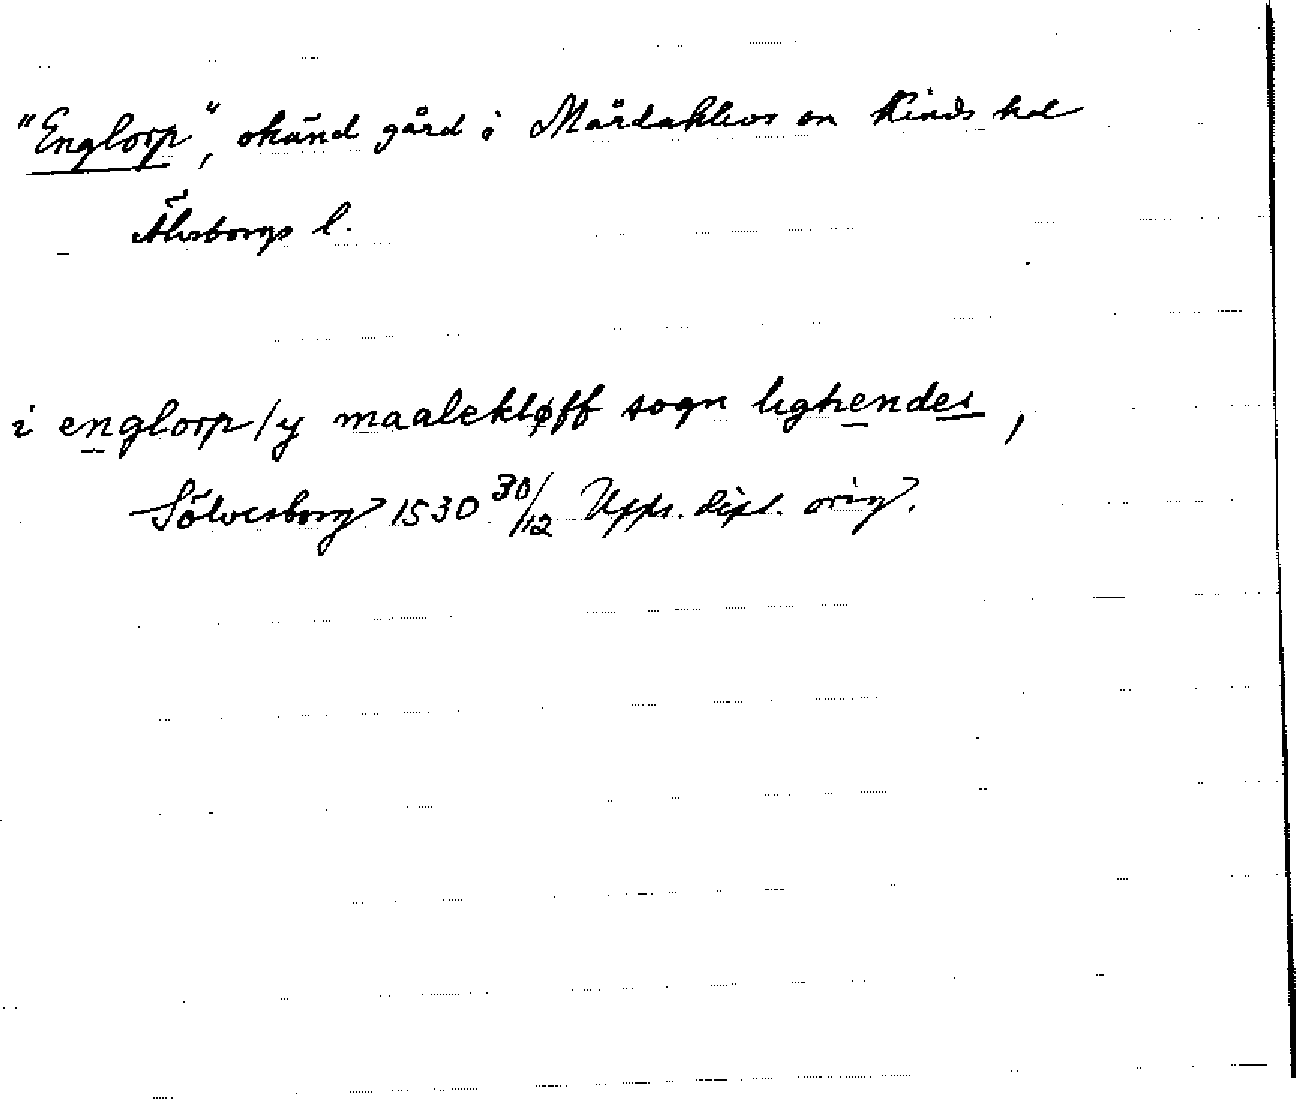 "Englorp", okänd gård i Mårdaklevs sn Kinds hd
Älvsborgs l.
i englorp / y maalekløff sogn lighendes,
Sölvesborg 1530 30/12 Upps. dipl. orig.